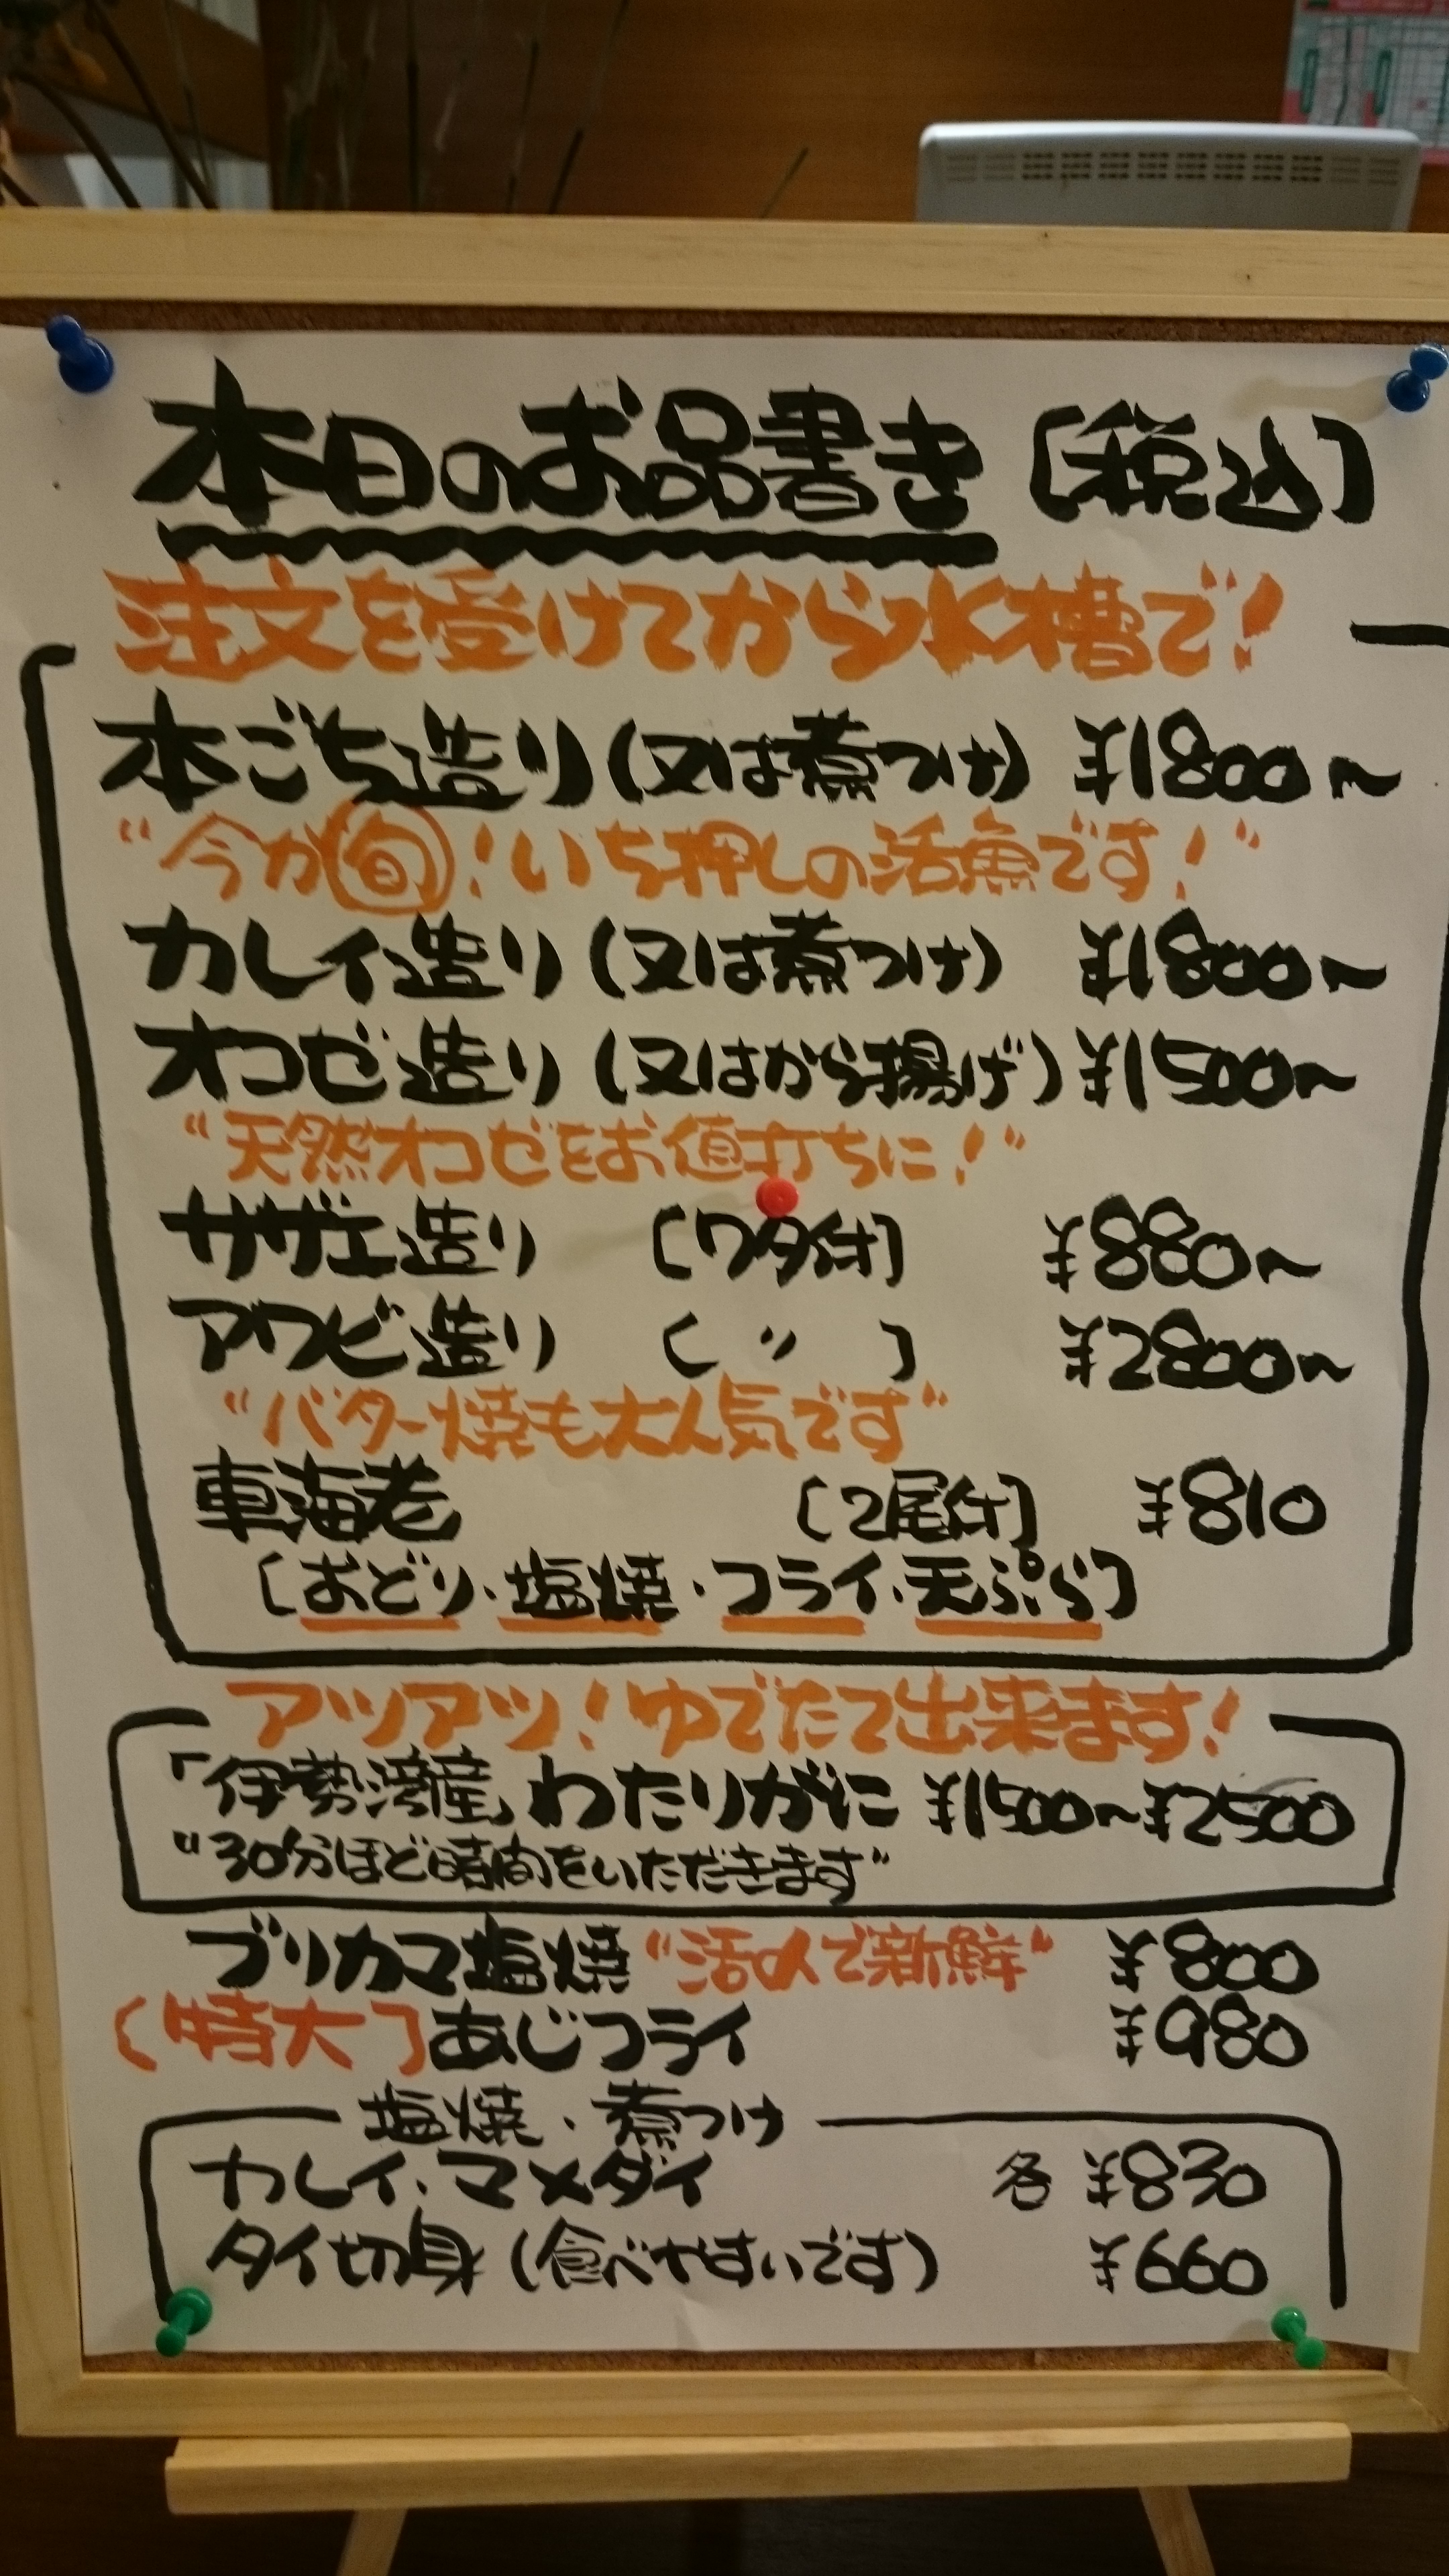 本日のお品書き〔税込〕
注文を受けてから水槽で!
本ごち造り(又は煮つけ) ¥1800〜
"今が旬!いち押しの活魚です!"
カレイ造り(又は煮つけ) ¥1800〜
オコゼ造り(又はから揚げ) ¥1500〜
"天然オコゼをお値打ちに!"
サザエ造り 〔ワタ付〕 ¥880〜
アワビ造り 〔 〃 〕 ¥2800〜
"バター焼も大人気です"
車海老 〔2尾付〕 ¥810
〔おどり・塩焼・フライ・天ぷら〕
アツアツ!ゆでたて出来ます!
「伊勢湾産」わたりがに ¥1500〜¥2500
"30分ほど時間をいただきます"
ブリカマ塩焼 "活〆で新鮮" ¥800
〔特大〕あじフライ ¥980
塩焼・煮つけ
カレイ・マメダイ 各 ¥830
タイ切身(食べやすいです) ¥660